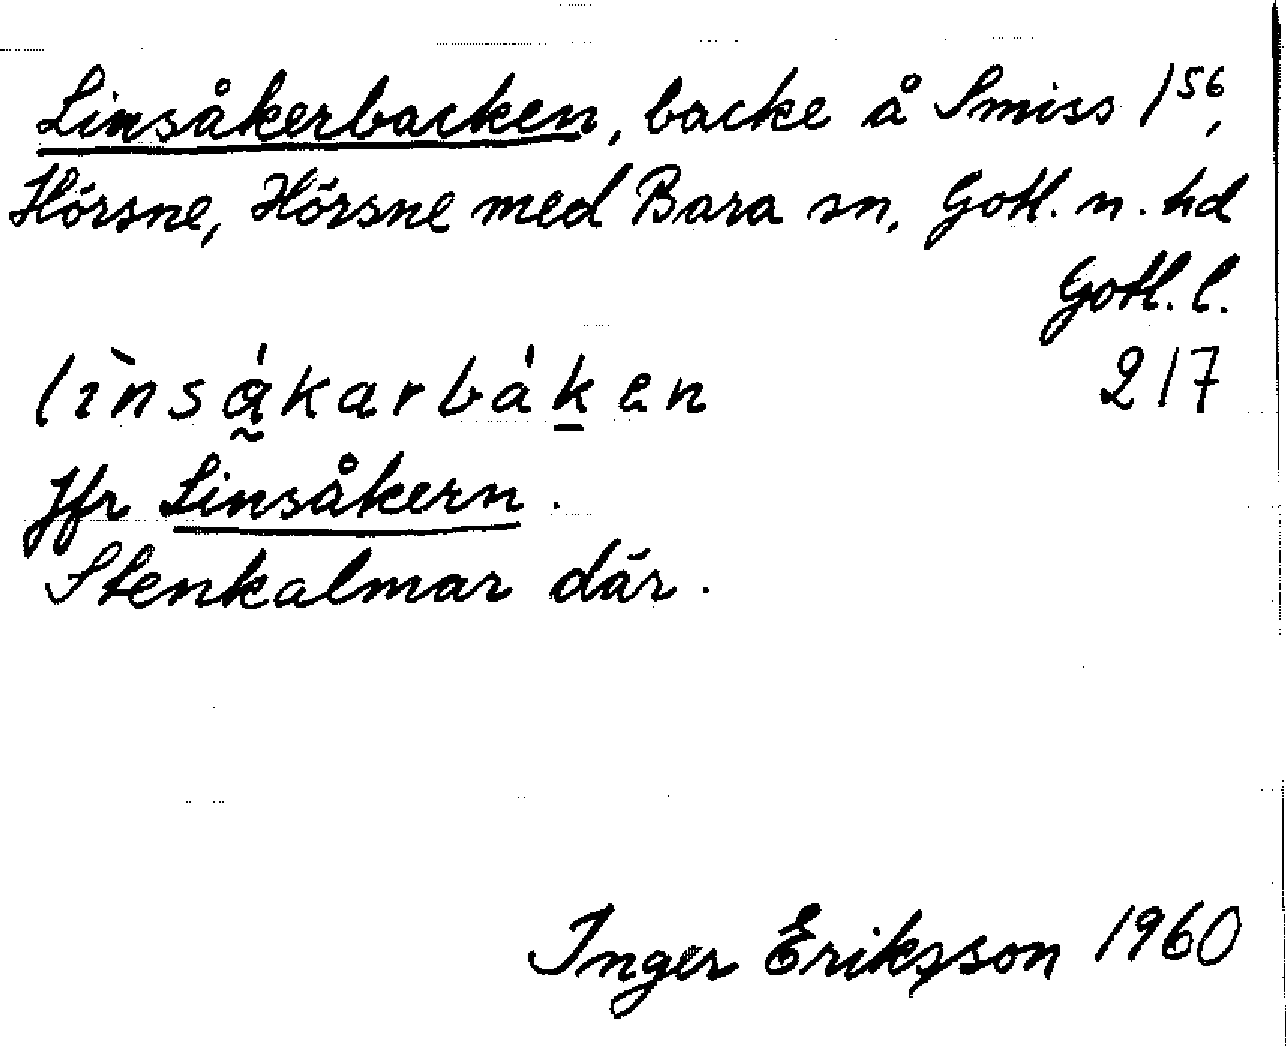 Linsåkerbacken, backe å Smiss 1⁵⁶,
Hörsne, Hörsne med Bara sn, Gotl. n. hd
Gotl. l.
lìnsá̰karbák̲en 217
Jfr Linsåkern.
Stenkalmar där.
Inger Eriksson 1960